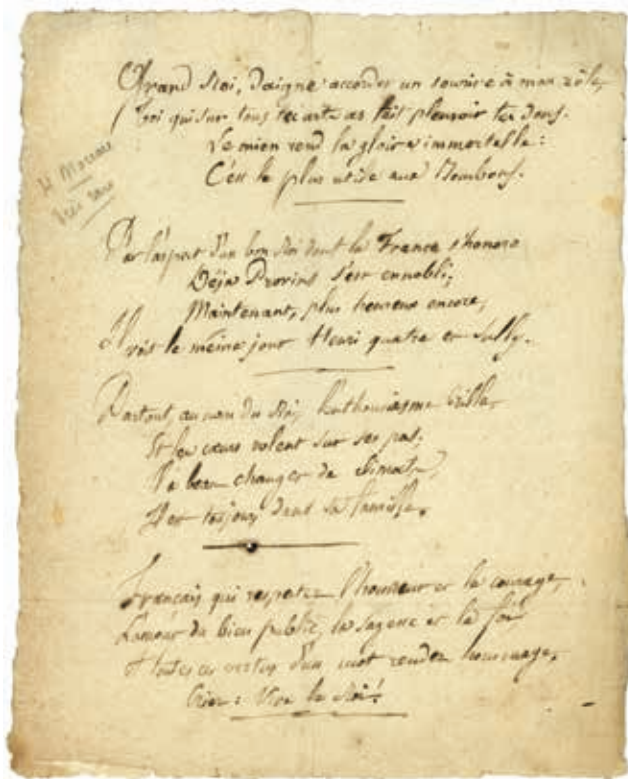 Grand Roi, daigne accorder un sourire à mon zèle,
Toi qui sur tous les arts as fait pleuvoir tes dons.
Le mien rend la gloire immortelle :
C'est le plus utile aux Bourbons.
H Moreau
très rare
Par l'aspect d'un bon Roi dont la France s'honore
Déja Provins s'est ennobli;
Maintenant, plus heureux encore,
Il voit le même jour Henri quatre et Sully.
Partout, au nom du Roi, l'enthousiasme brille,
Et les cœurs volent sur ses pas.
Il a beau changer de climats,
Il est toujours dans sa famille.
Français qui respectez l'honneur et le courage,
L'amour du bien public, la sagesse et la foi
A toutes ces vertus d'un mot rendez hommage,
Criez : Vive le Roi!